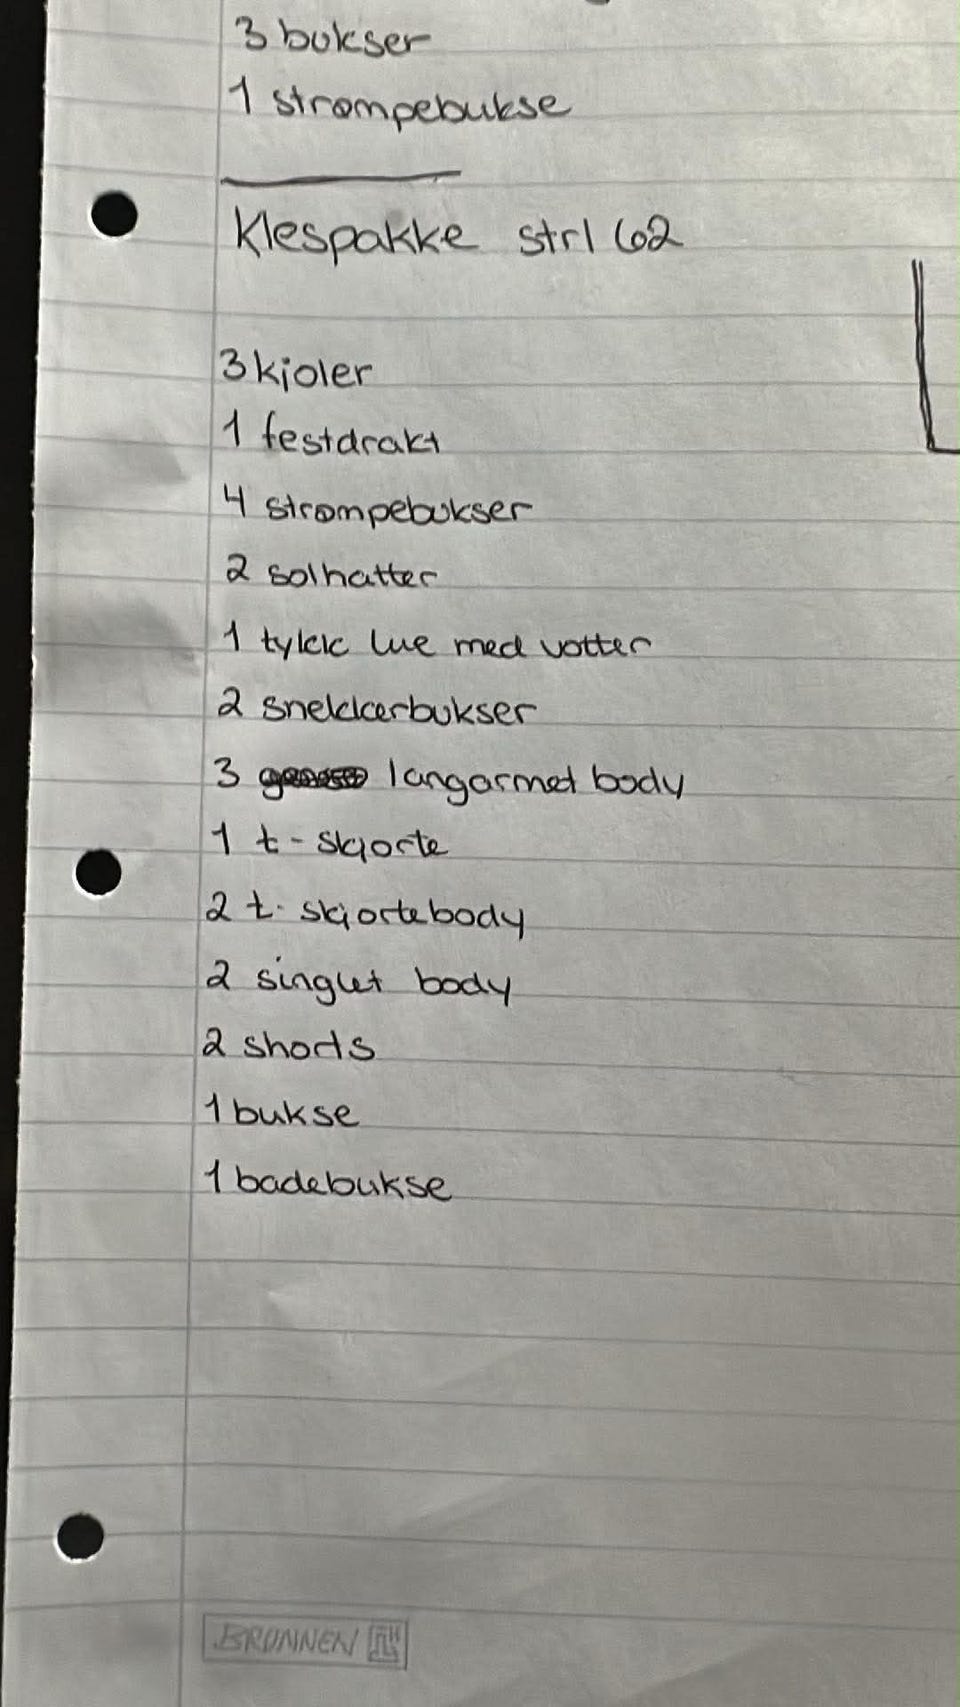 3 bukser
1 strømpebukse
Klespakke strl 62
3 kjoler
1 festdrakt
4 strømpebukser
2 solhatter
1 tykk lue med votter
2 snekkerbukser
3 langarmet body
1 t-skjorte
2 t-skjortebody
2 singlet body
2 shorts
1 bukse
1 badebukse
BRUNNEN